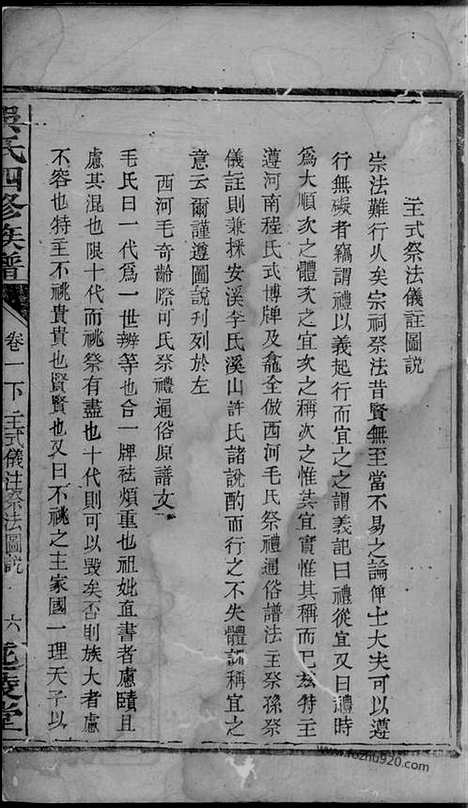 主式祭法儀註圖說
宗法難行久矣宗祠祭法昔賢無至當不易之論俾士大夫可以遵
行無礙者竊謂禮以義起行而宜之之謂義記曰禮從宜又曰禮時
為大順次之體次之宜次之稱次之惟其宜實惟其稱而已玆特主
遵河南程氏式博牌及龕全倣西河毛氏祭禮通俗譜法主祭孫祭
儀註則兼採安溪李氏溪山許氏諸說酌而行之不失體詭稱宜之
意云爾謹遵圖說刋列於左
西河毛奇齡際可氏祭禮通俗原譜文
毛氏曰一代為一世辨等也合一牌祛煩重也祖妣直書者慮賾且
慮其混也限十代而祧祭有盡也十代則可以毀矣否則族大者慮
不容也特主不祧貴貴也賢賢也又曰不祧之主家國一理天子以
吳氏四修族譜
卷一下
主式儀注祭法圖說
六
延陵堂
www.fozhu920.com